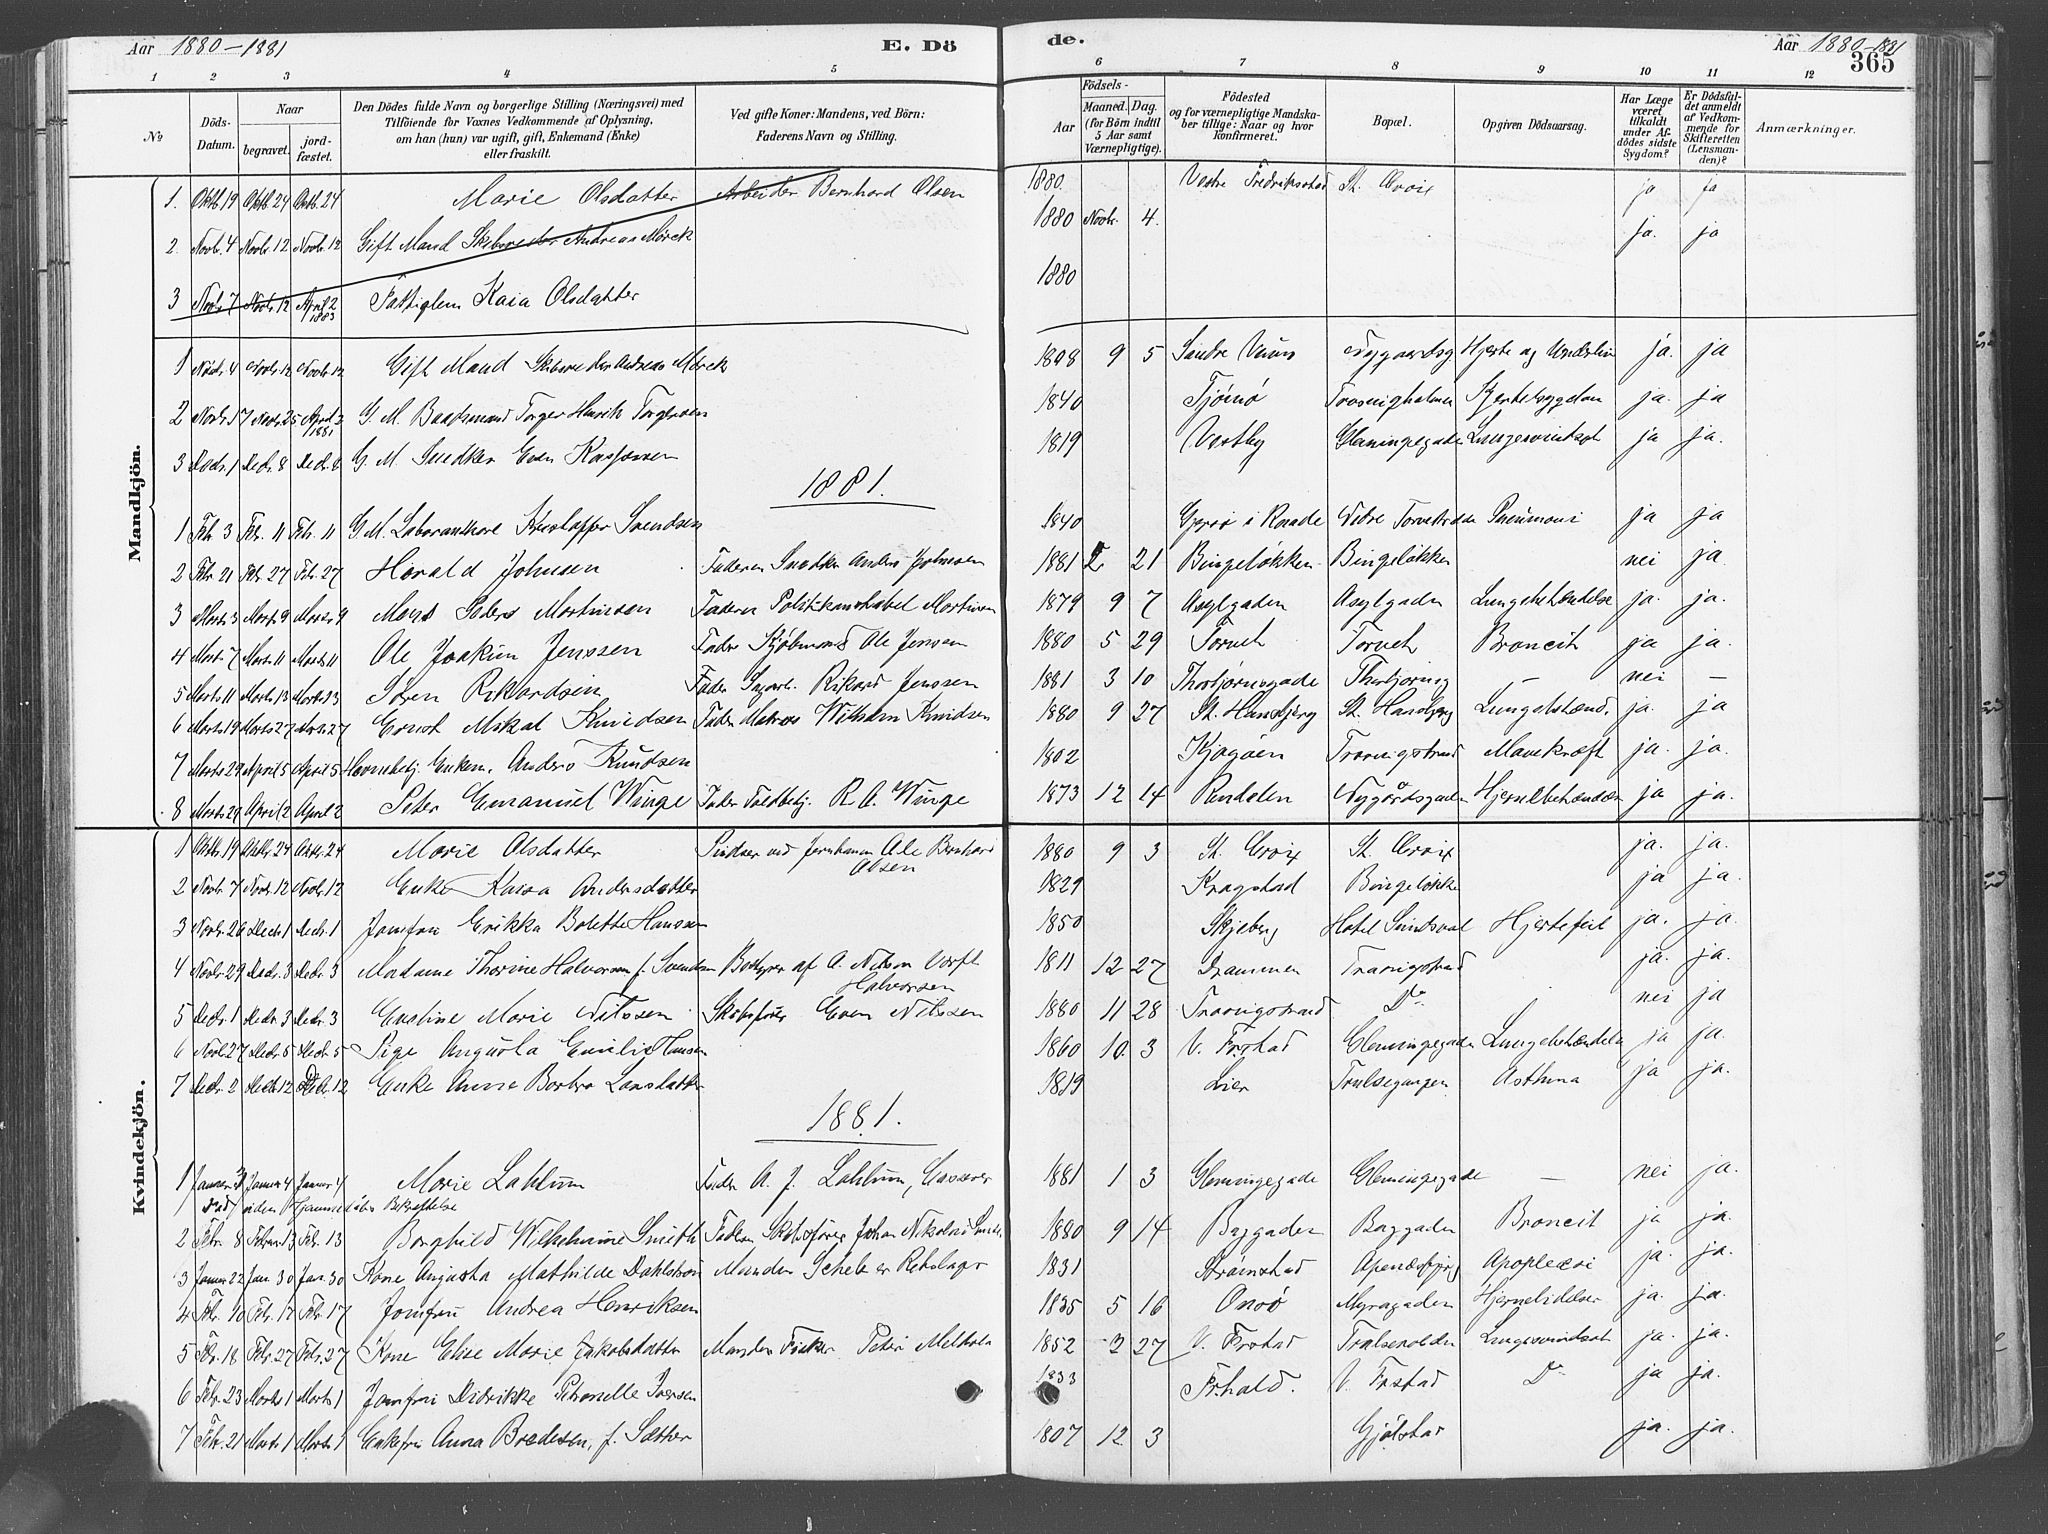 Aar 1880-1881
E. Döde.
Aar 1880-1881
365
1 2 3 4 5 6 7 8 9 10 11 12
No
Döds-Datum.
Naar
begravet.
jordfæstet.
Den Dödes fulde Navn og borgerlige Stilling (Næringsvei) med Tilföiende for Voxnes Vedkommende af Oplysning, om han (hun) var ugift, gift, Enkemand (Enke) eller fraskilt.
Ved gifte Koner: Mandens, ved Börn: Faderens Navn og Stilling.
Födsels-
Aar
Maaned. Dag.
(for Börn indtil 5 Aar samt Værnepligtige).
Födested og for værnepligtige Mandskaber tillige: Naar og hvor konfirmeret.
Bopæl.
Opgiven Dödsaarsag.
Har Læge været tilkaldt under Afdödes sidste Sygdom?
Er Dödsfaldet anmeldt af Vedkommende for Skifteretten (Lensmanden)?
Anmærkninger.
Mandkjön.
1. Oktb. 19 Oktb. 24 Octb. 24 Marie Olsdatter Arbeider Bernhard Olsen 1880 Vestre Fredriksstad St. Croix ja ja
2 Novbr. 4 Novbr. 12 Novbr. 12 Gift Mand Skibsreder Andreas Mørck 1880 Novbr. 4 ja. ja
3 Novbr. 7 Novbr. 12 April 2 1883 Fattiglem Kaia Olsdatter 1880
1 Novbr. 4 Novbr. 12 Novbr. 12 Gift Mand Skibsreder Andreas Mørck 1808 9 5 Hjerte og ja. ja
2 Novbr. 17 Novbr. 25 April 3 1881 G. M. Baadsmand Torger Henrik Torgersen 1840 Tjömö ja. ja
3 Decbr. 1 Decbr. 8 Decbr. 8 G. M. Snedker Even Kaspersen 1819 Vestby Glemmingegaden Lungesvindsot ja ja.
1881.
1 Febr. 3 Febr. 11 Febr. 11 G. M. Kristoffer Svendsen 1840 i Raade Pneumoni ja ja
2 Febr. 21 Febr. 27 Febr. 27 Harald Johnsen Faderen Snedker Anders Johnsen 1881 2 21 Bingeløkken Bingeløkken nei ja
3 Marts 3 Marts 9 Marts 9 Martinsen Faderen Politikonstabel Martinsen 1879 9 7 Asylgaden Asylgaden Lungebetændelse ja. ja.
4 Marts 7 Marts 11 Marts 11 Ole Joakim Jenssen Fader Kjöbmand Ole Jensen 1880 5 29 Torvet Torvet Broncit ja ja.
5 Marts 11 Marts 13 Marts 23 Sören Rikardsen Fader Rikard Jenssen 1881 3 10 Thorbjørnsgade — nei —
6 Marts 19 Marts 27 Marts 27 Ernst Mikal Knudsen Fader Matros William Knudsen 1880 9 27 St. Hansbjerg St. Hansbjerg Lungebetænd. ja. ja
7 Marts 29 April 5 April 5 Enkem. Anders Knudsen 1802 Kjøgöen Mavekræft ja. ja.
8 Marts 29 April 2 April 2 Peter Emanuel Winge Fader Toldbetj. R. A. Winge 1873 12 14 Nygårdsgaden ja ja.
Kvindekjön.
1 Oktbr. 19 Oktbr. 24 Oktbr. 24 Marie Olsdatter Ole Bernhard Olsen 1880 9 3 St. Croix St. Croix ja. ja.
2 Novbr. 7 Novbr. 12 Novbr. 12 Enke Andersdatter 1829 Kragstad Bingeløkke ja ja.
3 Novbr. 26 Decbr. 1 Decbr. 1 Jomfru Erikka Bolette Hanssen 1850 Skjeberg Hotel Hjertefeil ja. ja.
4 Novbr. 29 Decbr. 3 Decbr. 3 Madame Thorine Halvorsen f. Svendsen af A. Nilsen Værft Halvorsen 1811 12 27 Drammen ja. ja.
5 Decbr. 1 Decbr. 3 Decbr. 3 Marie Nilssen Skibsfører Even Nilssen 1880 11 28 Do nei ja
6 Novbr. 27 Decbr. 5 Decbr. 5 Pige Augusta Emilie Hansen 1860 10. 3 V. Frstad Glemmingegaden Lungebetændelse ja ja.
7 Decbr. 2 Decbr. 12 Decbr. 12 Enke Anne Barbro Larsdatter 1819 Lier Asthma ja ja.
1881.
1 Januar 3 Januar 4 Januar 4 Marie Lahlum Fader A. J. Lahlum, 1881 1 3 Glemmingegade Glemmingegade — nei ja.
2 Febr. 8 Februar 13 Febr. 13 Borghild Wilhelmine Smith Faderen Skibsfører Johan Nikolai 1880 9 14 Baggaden Baggaden Broncit ja ja.
3 Januar 22 Jan. 30 Jan. 30 Kone Augusta Mathilde Dahlström Manden 1831 Strømstad Apopleksi ja. ja.
4 Febr. 10 Febr. 17 Febr. 17 Jomfru Andrea Henriksen 1835 5 16 Onsö Myragaden Hjernelidelser ja. ja.
5 Febr. 18 Febr. 27 Febr. 27 Kone Elise Marie Jakobsdatter Manden Fisker Peter 1852 3 27 V. Frstad Lungesvindsot ja. ja.
6 Febr. 23 Marts 1 Marts 1 Jomfru Didrikke Petronelle Iversen 1833 Frhald. V. Frstad Do ja ja.
7 Febr. 21 Marts 1 Marts 1 Enkefru Anna Bredesen, f. Sæther 1807 12 3 ja. ja.